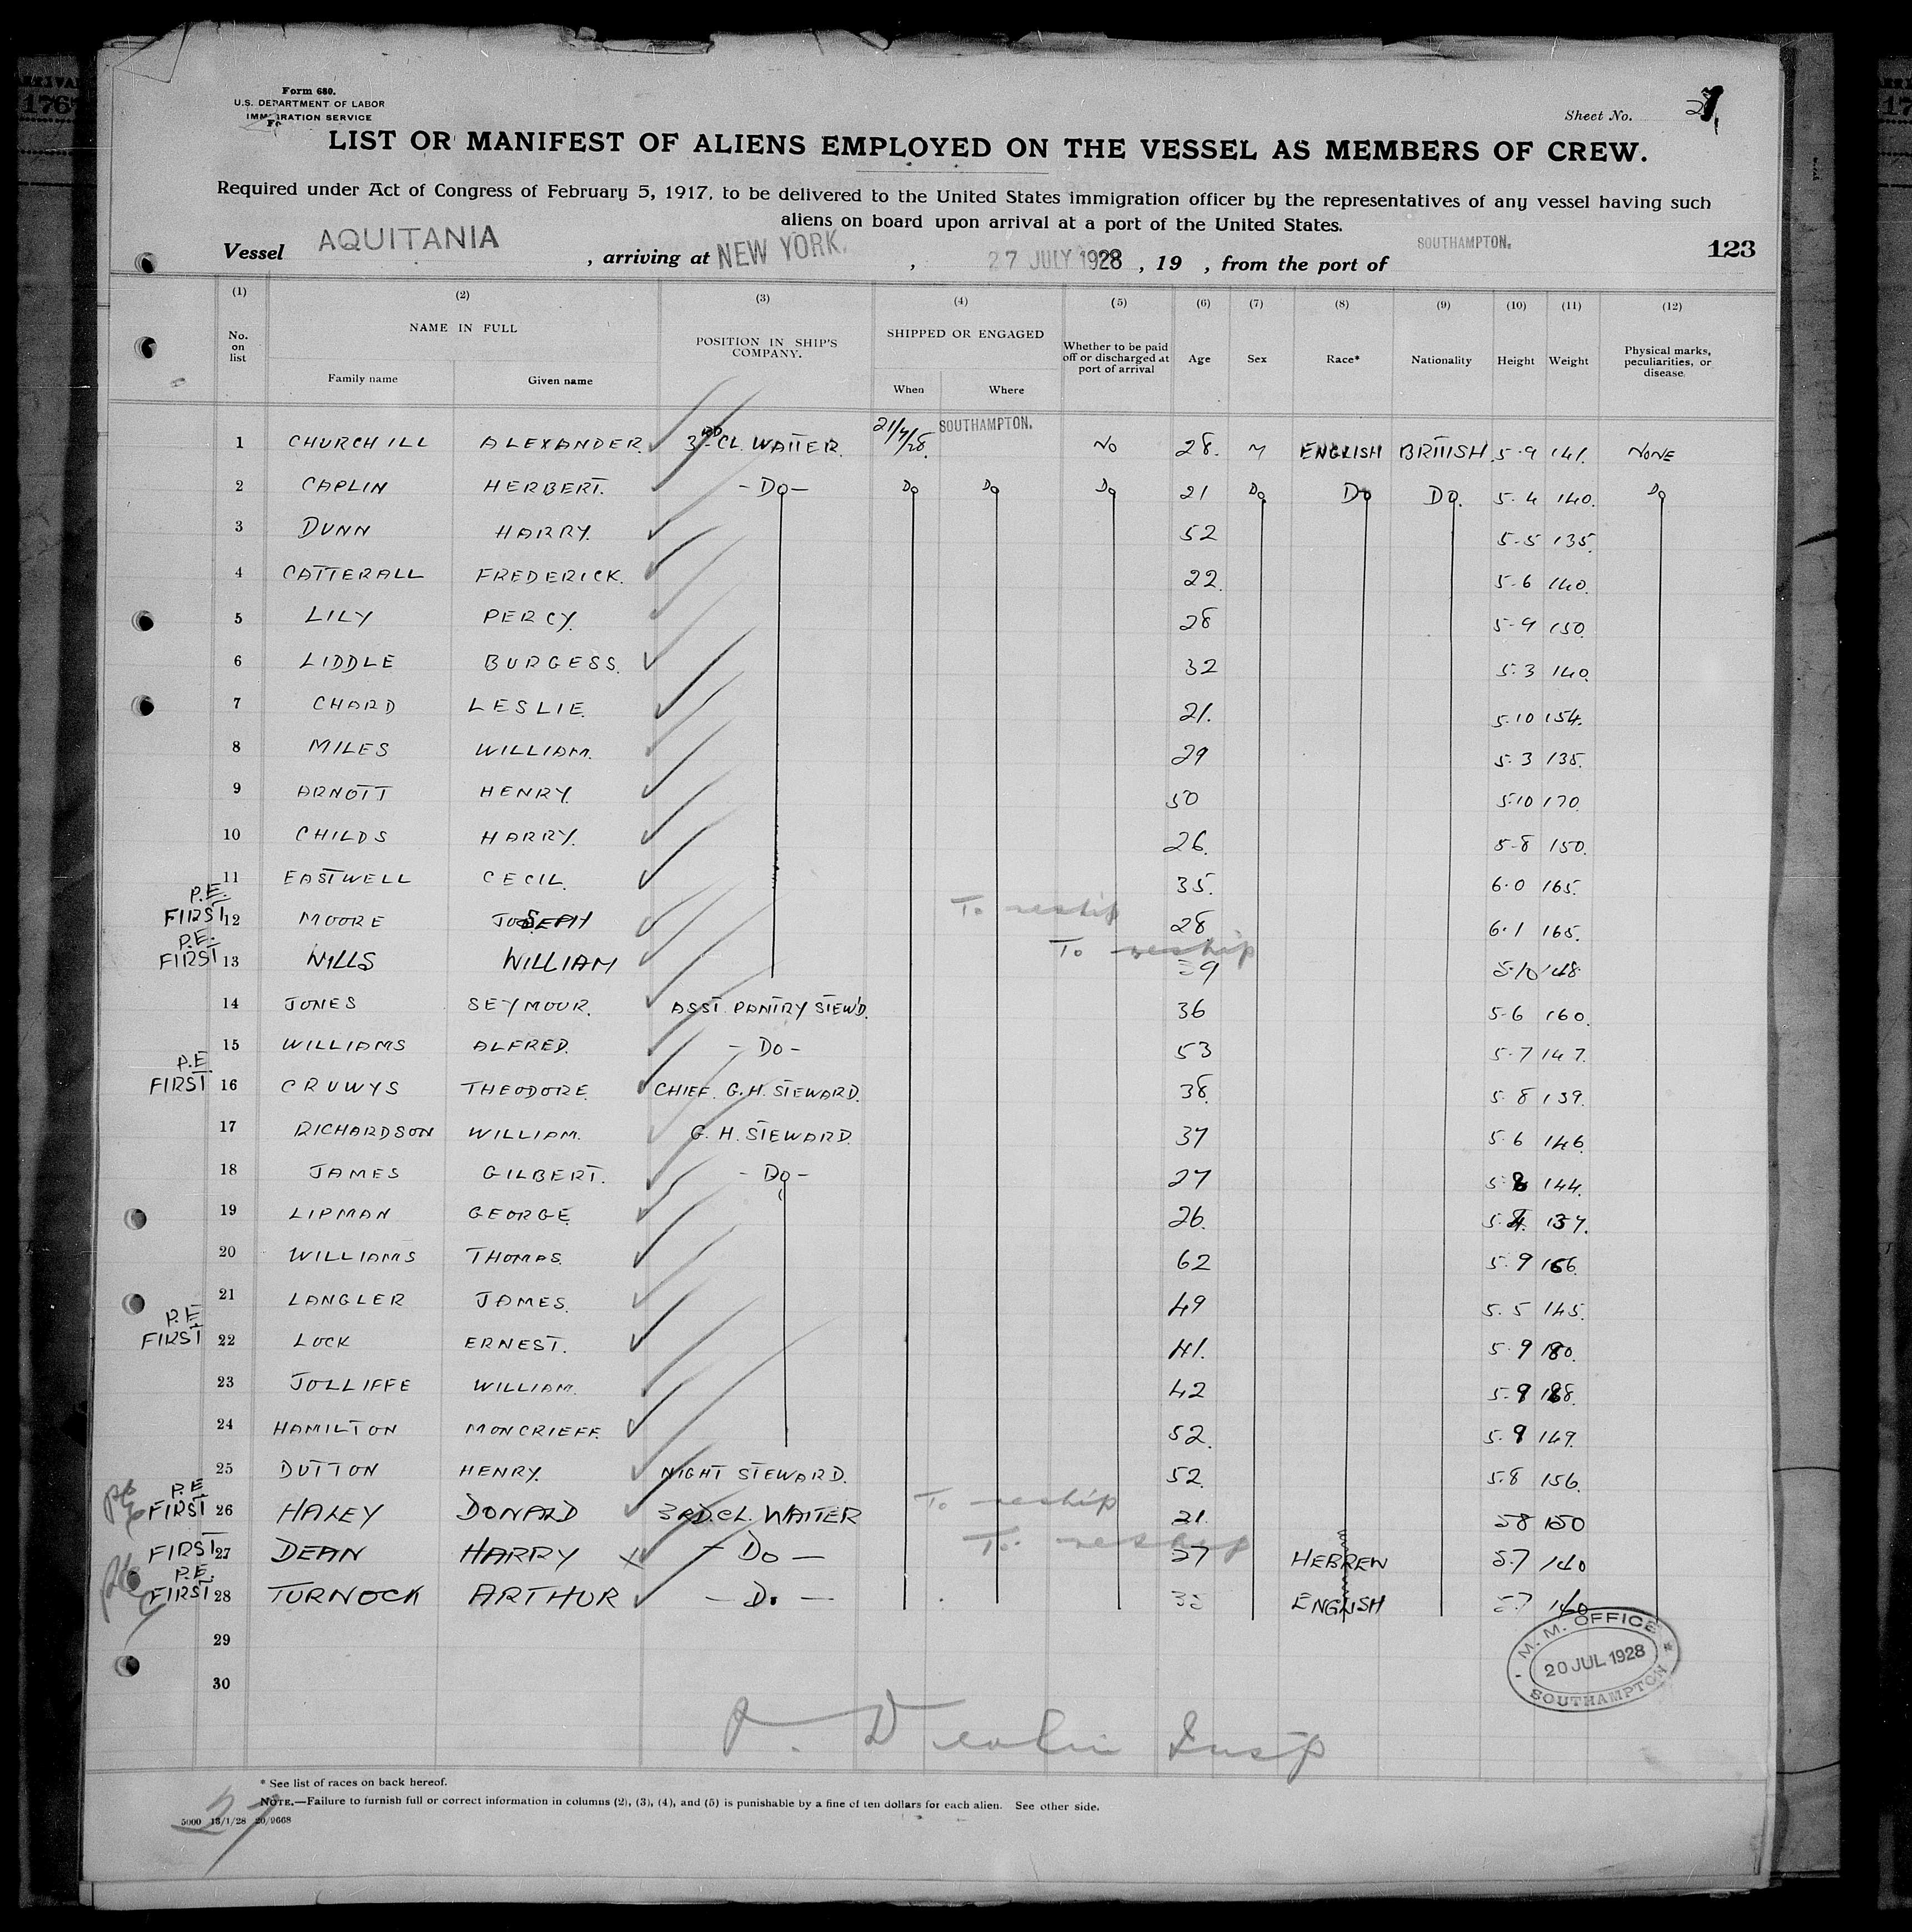 Form 680.
U.S. DEPARTMENT OF LABOR
IMMIGRATION SERVICE
Sheet No.
LIST OR MANIFEST OF ALIENS EMPLOYED ON THE VESSEL AS MEMBERS OF CREW.
Required under Act of Congress of February 5, 1917, to be delivered to the United States immigration officer by the representatives of any vessel having such
aliens on board upon arrival at a port of the United States.
Vessel AQUITANIA , arriving at NEW YORK. , 27 JULY 1928 , 19 , from the port of SOUTHAMPTON. 123
(1) (2) (3) (4) (5) (6) (7) (8) (9) (10) (11) (12)
No. on list NAME IN FULL Family name Given name POSITION IN SHIP'S COMPANY. SHIPPED OR ENGAGED When Where Whether to be paid off or discharged at port of arrival Age Sex Race* Nationality Height Weight Physical marks, peculiarities, or disease.
1 CHURCHILL ALEXANDER. 3RD CL. WAITER. 21/7/28. SOUTHAMPTON. No 28. M ENGLISH BRITISH 5-9 141. NONE
2 CAPLIN HERBERT. -Do- Do Do Do 21 Do Do Do. 5-4 140. Do
3 DUNN HARRY. 52 5-5 135.
4 CATTERALL FREDERICK. 22. 5-6 140.
5 LILY PERCY. 28 5-9 150.
6 LIDDLE BURGESS. 32 5.3 140.
7 CHARD LESLIE. 21. 5.10 154.
8 MILES WILLIAM. 29 5.3 135.
9 ARNOTT HENRY. 50 5.10 170.
10 CHILDS HARRY. 26. 5-8 150.
11 EASTWELL CECIL. 35. 6.0 165.
P.E. FIRST 12 MOORE JOSEPH To reship 28 6.1 165.
P.E. FIRST 13 WILLS WILLIAM To reship 5-10 148.
14 JONES SEYMOUR. ASST. PANTRY STEW'D. 36 5-6 160.
15 WILLIAMS ALFRED. -Do- 53 5-7 147.
P.E. FIRST 16 CRUWYS THEODORE. CHIEF. G.H. STEWARD. 38. 5.8 139.
17 RICHARDSON WILLIAM. G.H. STEWARD. 37 5.6 146.
18 JAMES GILBERT. -Do- 27 144.
19 LIPMAN GEORGE. 26. 137.
20 WILLIAMS THOMAS. 62 5.9 166.
21 LANGLER JAMES. 49 5.5 145.
P.E. FIRST 22 LOCK ERNEST. 41. 5.9 180.
23 JOLLIFFE WILLIAM. 42 5.9
24 HAMILTON MONCRIEFF. 52. 5.9 149.
25 DUTTON HENRY. NIGHT STEWARD. 52. 5.8 156.
P.E. FIRST 26 HALEY DONALD 3RD.CL. WAITER To reship 21. 58 150
FIRST 27 DEAN HARRY X -Do- To reship HEBREW 5.7 140
P.E. FIRST 28 TURNOCK ARTHUR -Do- ENGLISH 5.7 140
29
30
M. M. OFFICE
20 JUL 1928
SOUTHAMPTON
Insp
* See list of races on back hereof.
NOTE.—Failure to furnish full or correct information in columns (2), (3), (4), and (5) is punishable by a fine of ten dollars for each alien. See other side.
5000 13/1/28 20/9668
27